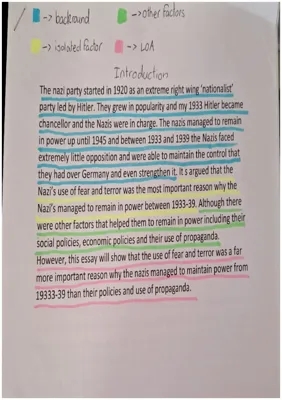 → backround → other factors
→ isolated factor → LOA
Introduction
The nazi party started in 1920 as an extreme right wing 'nationalist'
party led by Hitler. They grew in popularity and my 1933 Hitler became
chancellor and the Nazis were in charge. The nazis managed to remain
in power up until 1945 and between 1933 and 1939 the Nazis faced
extremely little opposition and were able to maintain the control that
they had over Germany and even strengthen it. It is argued that the
Nazi's use of fear and terror was the most important reason why the
Nazi's managed to remain in power between 1933-39. Although there
were other factors that helped them to remain in power including their
social policies, economic policies and their use of propaganda.
However, this essay will show that the use of fear and terror was a far
more important reason why the nazis managed to maintain power from
19333-39 than their policies and use of propaganda.